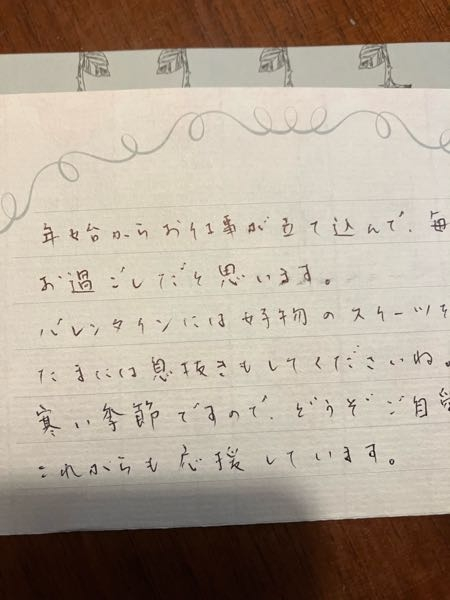 年始からお仕事が立て込んで、毎
お過ごしだと思います。
バレンタインには好物のスイーツを
たまには息抜きもしてくださいね。
寒い季節ですので、どうぞご自愛
これからも応援しています。